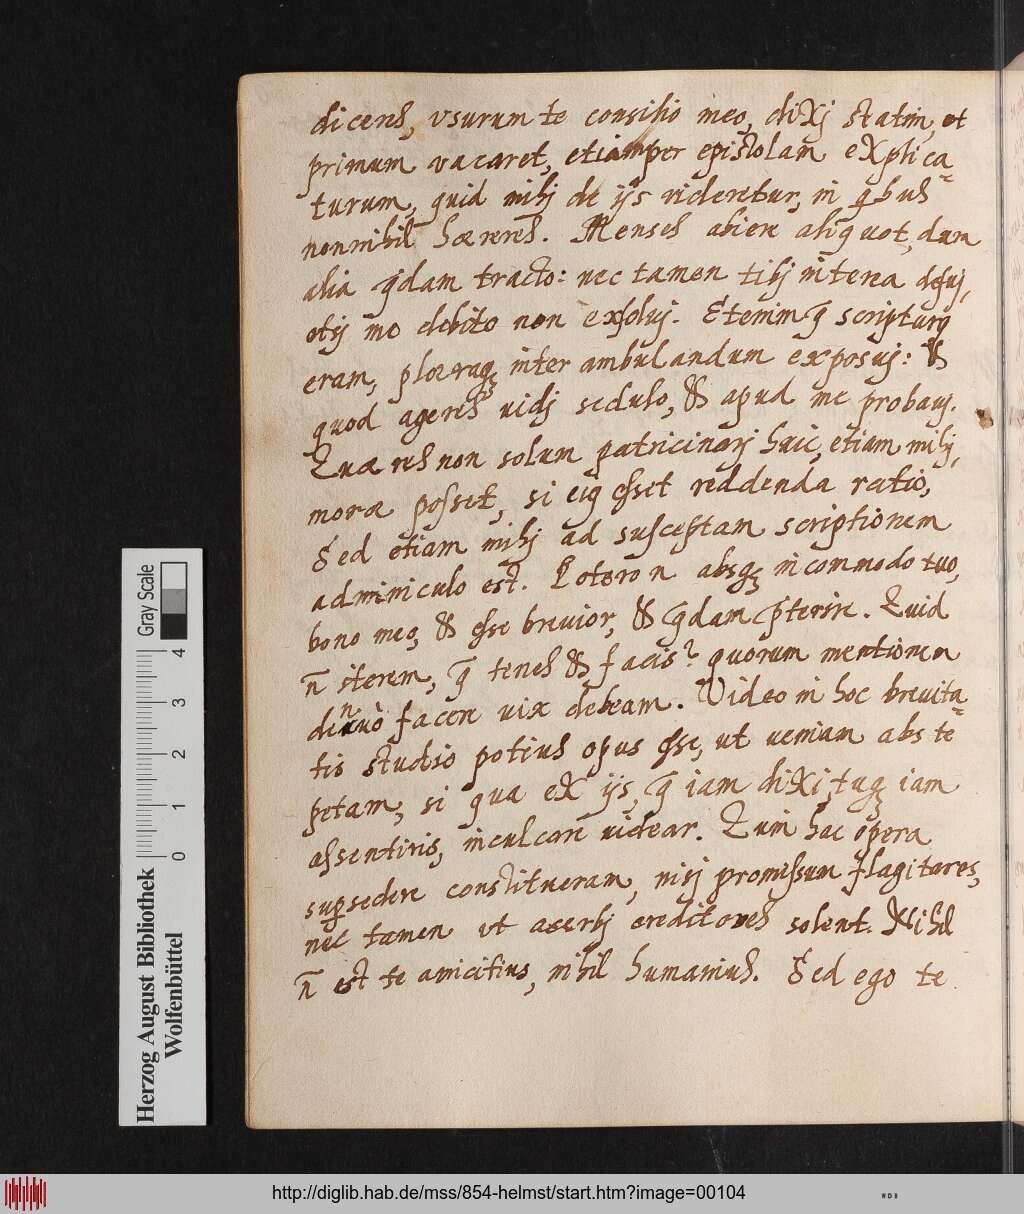 diceres, vsurum te consilio meo, dixj statim, ut
primum vacaret, etiam per epistolam explica-
turum, quid mihj de ijs videretur, in qbus
nonnihil hæreres. Menses abiere aliquot, dum
alia qdam tracto: nec tamen tibj interea defuj,
etsj me debito non exsoluj. Etenim q scripturq
eram, plæraq inter ambulandum exposuj: &
quod ageres vidj sedulo, & apud me probavj.
Quæ res non solum patrocinarj huic, etiam mihj,
moræ posset, si eiq esset reddenda ratio,
Sed etiam mihj ad susceptam scriptionem
adminiculo est. Potero n absq incommodo tuo,
bono meo, & esse brevior, & qdam pterire. Quid
n̄ iterem, q tenes & facis? quorum mentionem
denuò facere vix debeam. Video in hoc brevita-
tis studio potius opus esse, ut veniam abs te
petam, si qua ex ijs, q iam dixi, tuq iam
assentiris, inculcare videar. Quin hac opera
supsedere constitueram, nisj promissum flagitares,
nec tamen ut acerbj creditores solent. Nihil
n̄ est te amicitius, nihil humanius. Sed ego te
Herzog August Bibliothek
Wolfenbüttel
Gray Scale
0 1 2 3 4
http://diglib.hab.de/mss/854-helmst/start.htm?image=00104